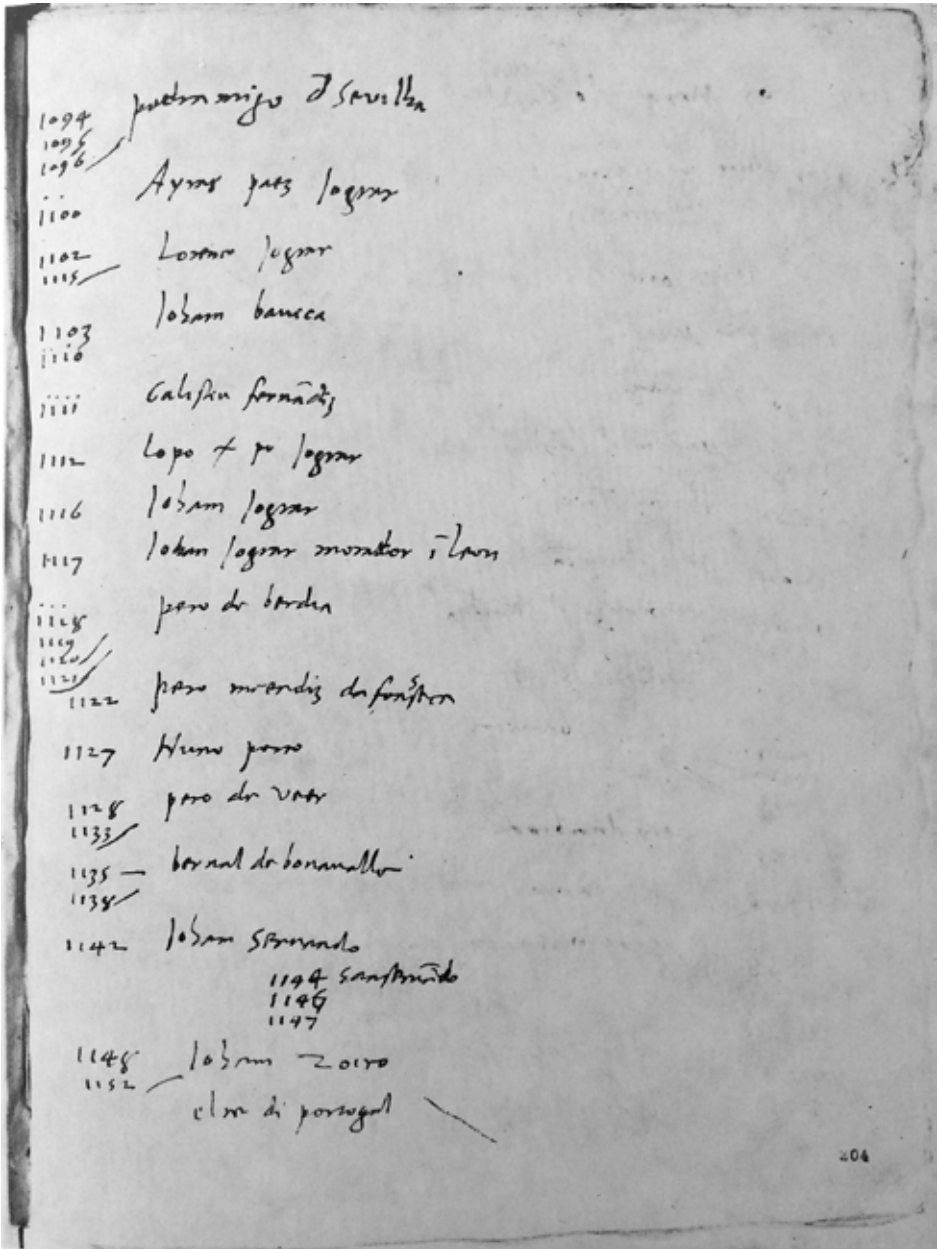 1094 pedramigo d Sevilha
1095
1096
Ayras paez Jograr
1100
1102 Lorenco Jograr
1115
Joham baueca
1103
1110
1111 Galisteu fernãdiz
1112 Lopo Jograr
1116 Joham Jograr
1117 Joham Jograr morador ĩ leon
1118 pero de berdia
1119
1120
1121
1122 pero meendiz da fonseca
1127 Nuno porco
1128 pero de veer
1133
1135 bernal de bonaualle
1138
1142 Joham Seruando
1144
1146
1147
1148 Joham Zoiro
1152
el rey di portogal
204